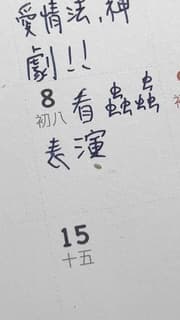 愛情法,神
劇!!
8 看蟲蟲
初八
表演
15
十五